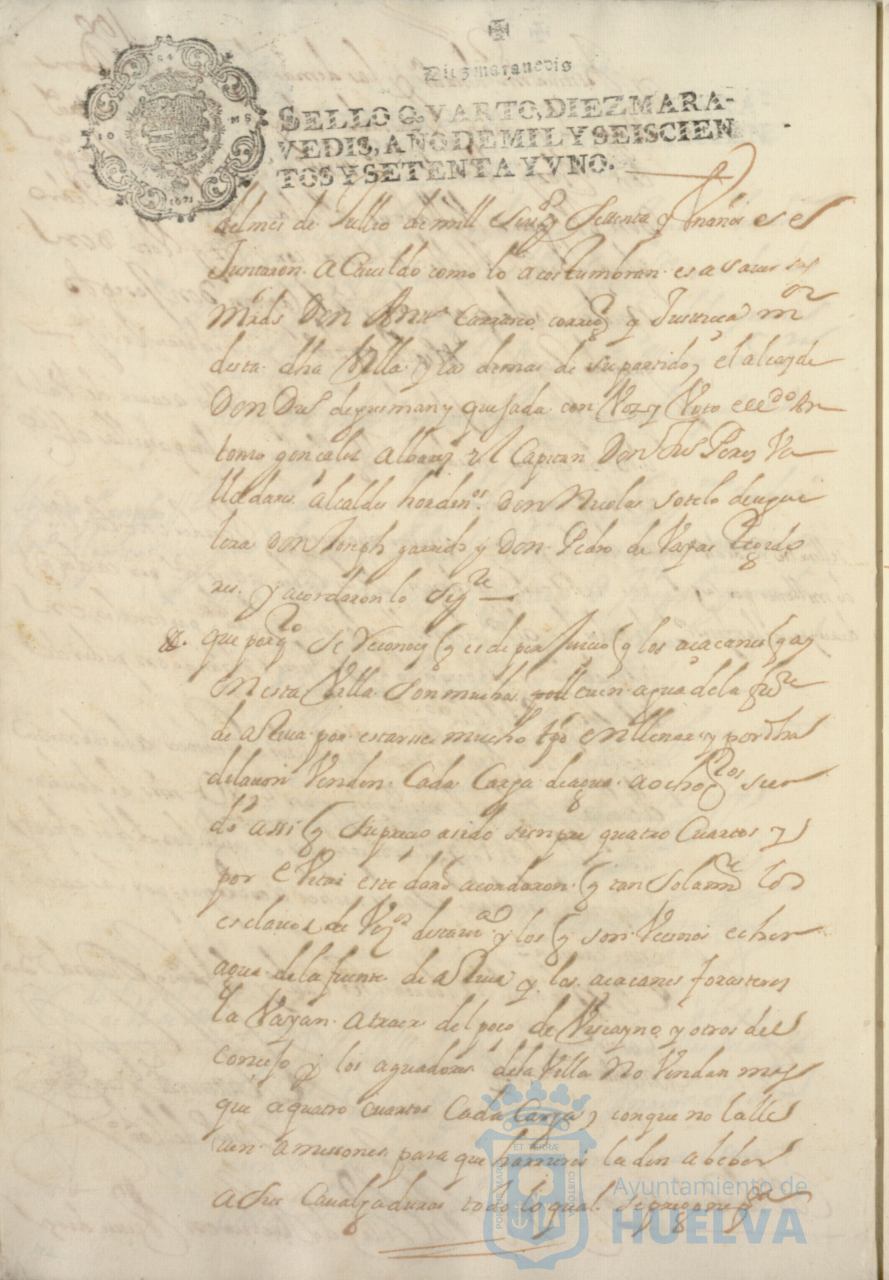 Diez maravedis
SELLO QVARTO, DIEZ MARA-
VEDIS, AÑO DE MIL Y SEISCIEN
TOS Y SETENTA Y VNO.
del mes de Jullio de mill seisos Settenta y Vn años es
Juntaron a Cauildo como lo acostumbran es a sauer sus
Mrds Don Anto Carrasco correxor y Justicia mor
desta dha Villa y las demas de su partido, el alcayde
Don de guzman y quesada con Voz y Voto el do An
tonio gonsales Albares el Capitan Don Peres Va
lladares alcaldes hordinos Don Nicolas sotelo de
Don Joseph garrido y Don Pedro de Vayas Regido
res. y acordaron lo sigte
que por qto se Reconoce q es de perjuicio q los açacanes q ay
en esta Villa son muchos lleuen agua de la fte
de a Rua por estarse mucho tpo en llenar y por dha
Venden Cada Carga de agua a ocho qtos sien
do assi q su precio a sido siempre quatro Cuartos y
por este daño acordaron q tan solamte los
esclauos de Vezos desta va y los q son Vecinos echen
agua de la fuente de a Rua y los açacanes forasteros
la Vayan a traer del poço de Viscayno y otros del
Consejo y los aguadores de la Villa No Vendan mas
que a quatro cuartos Cada Carga, conque no la lle
uen a messones para que la den a beber
a sus Caualgaduras todo lo qual se pregone
Ayuntamiento de
HUELVA